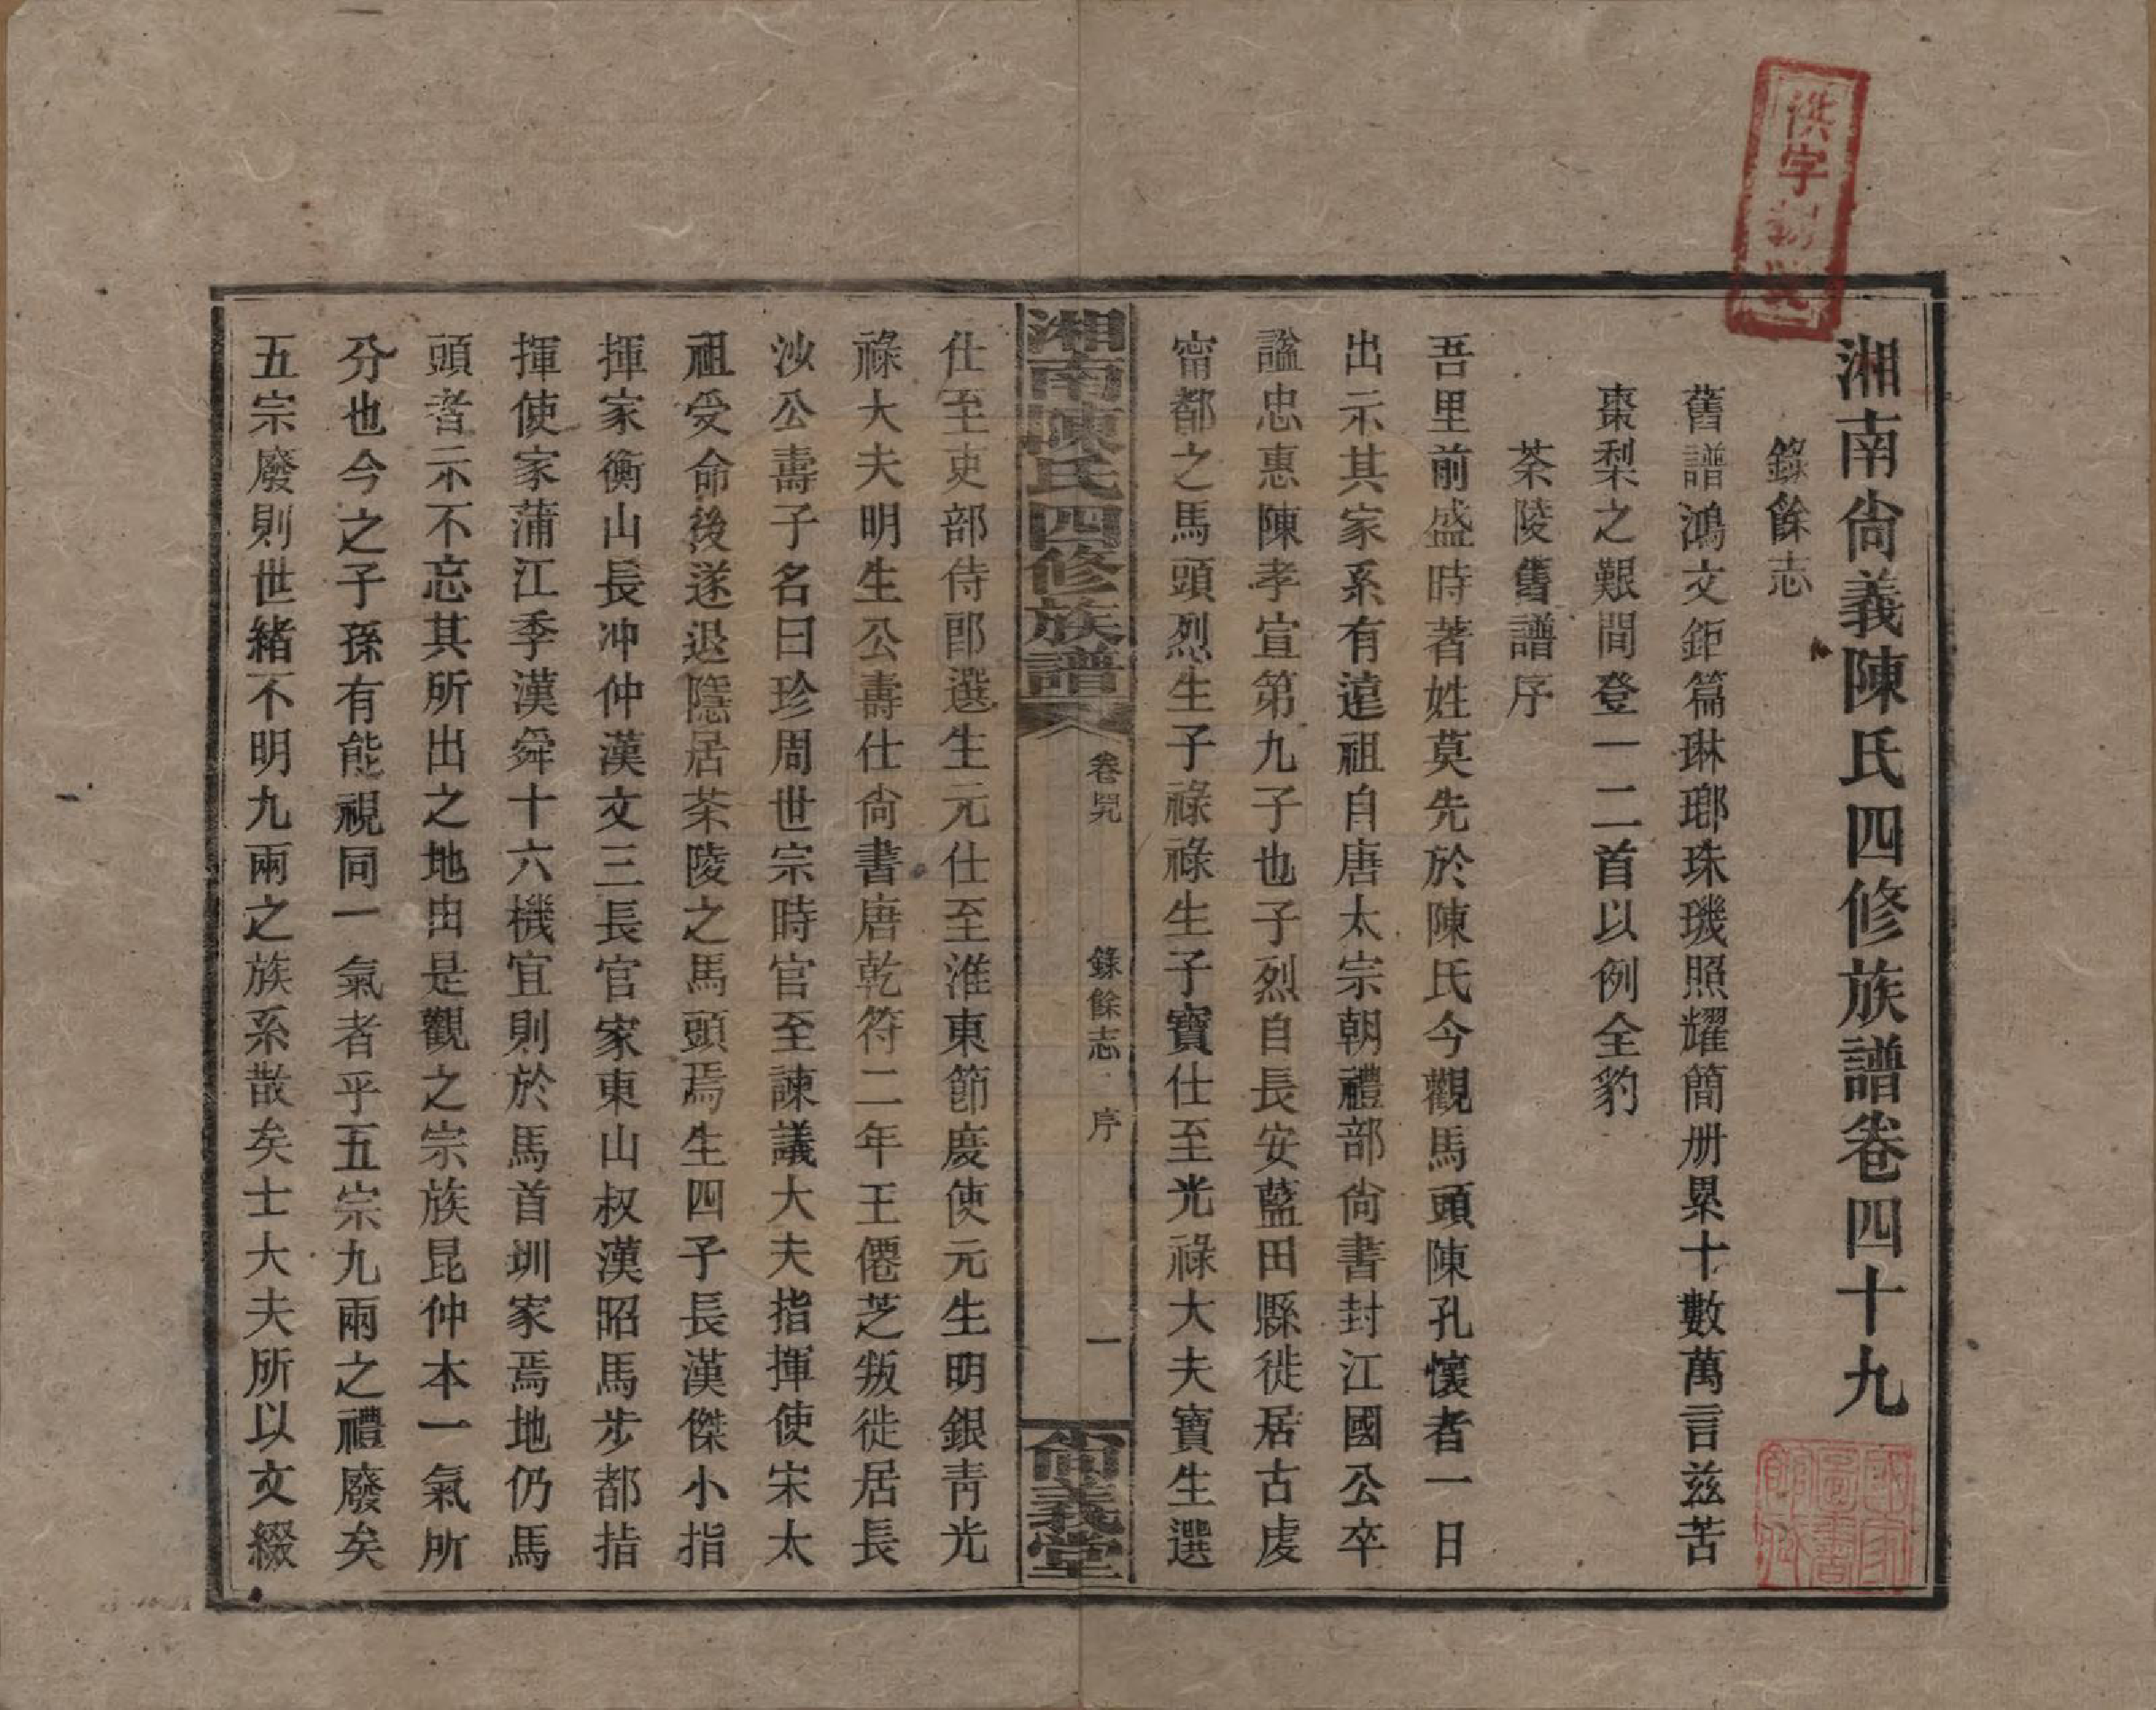 湘南尙義陳氏四修族譜卷四十九
錄餘志
舊譜鴻文鉅篇琳瑯珠璣照耀簡册累十數萬言兹苦
棗梨之艱間登一二首以例全豹
茶陵舊譜序
吾里前盛時著姓莫先於陳氏今觀馬頭陳孔懷者一日
出示其家系有遠祖自唐太宗朝禮部尙書封江國公卒
謚忠惠陳孝宣第九子也子烈自長安藍田縣徙居古虔
甯都之馬頭烈生子祿祿生子寶仕至光祿大夫寶生選
湘南陳氏四修族譜
卷四九
錄餘志
序
一
尙義堂
仕至吏部侍郎選生元仕至淮東節度使元生明銀青光
祿大夫明生公壽仕尙書唐乾符二年王僊芝叛徙居長
沙公壽子名曰珍周世宗時官至諫議大夫指揮使宋太
祖受命後遂退隱居茶陵之馬頭焉生四子長漢傑小指
揮家衡山長冲仲漢文三長官家東山叔漢昭馬步都指
揮使家蒲江季漢舜十六機宜則於馬首圳家焉地仍馬
頭者示不忘其所出之地由是觀之宗族昆仲本一氣所
分也今之子孫有能視同一氣者乎五宗九兩之禮廢矣
五宗廢則世緒不明九兩之族系散矣士大夫所以文綴